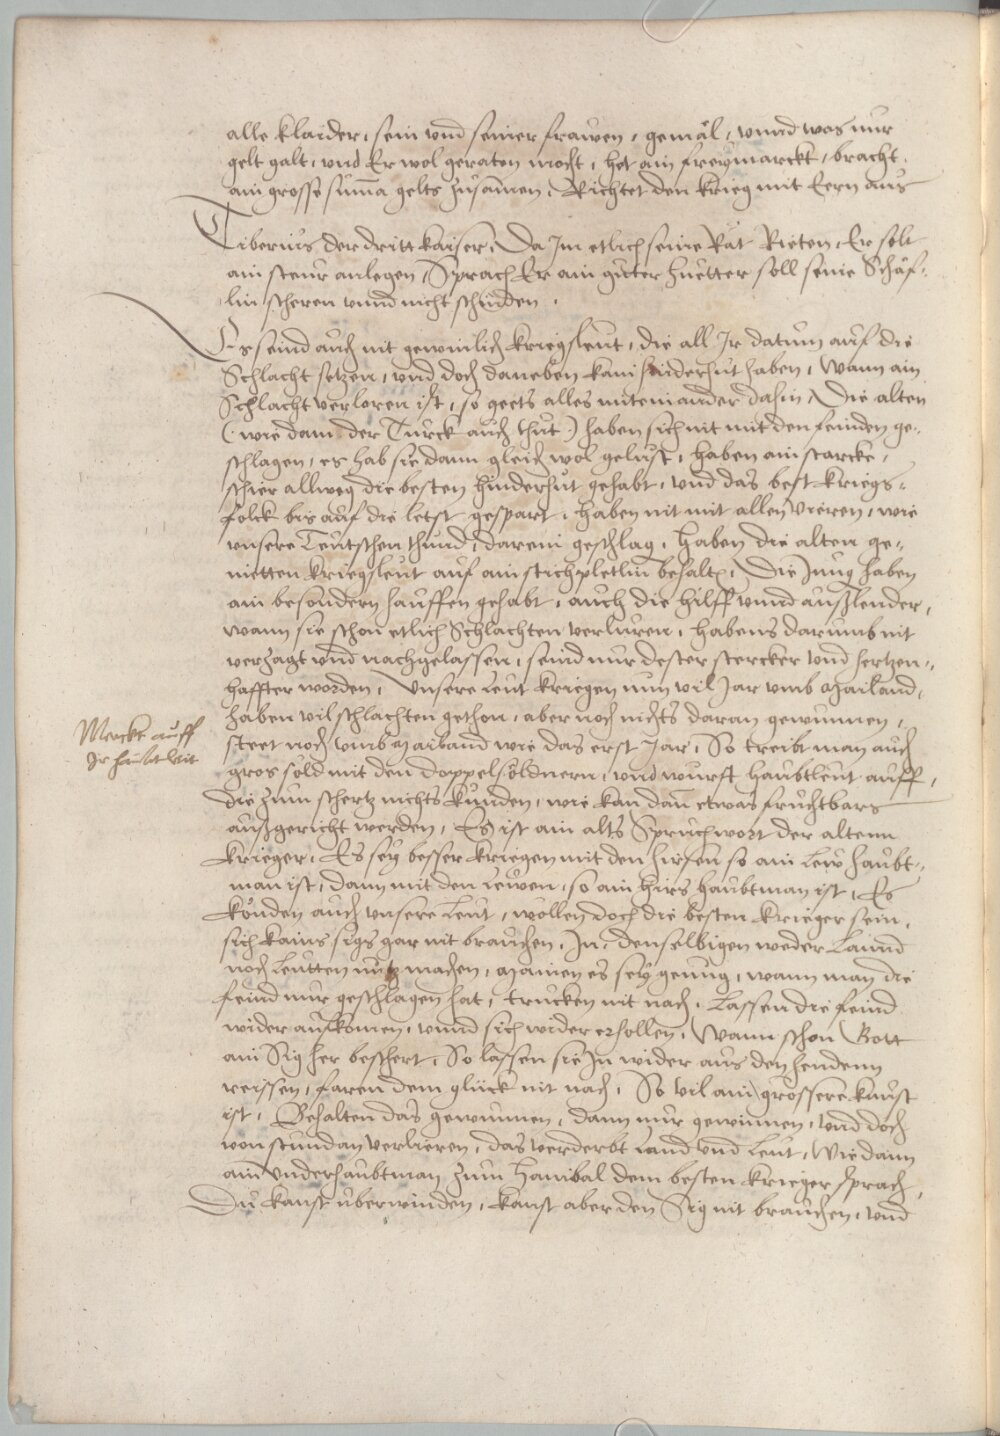 alle klaider, sein vnd seiner frawen, gemäl, vnnd was nur
gelt galt, vnd Er wol geraten mocht, het ain freymarckt, bracht
ain grosse suma gelts zusamen, Richtet den krieg mit Eern aus
Tiberius der dritt kaiser, Da Im etlich seine Rät Rieten, Er solt
ain steur anlegen, Sprach Er ain guter huetter soll seine Schäf-
lin scheren vnnd nicht schinden.
Es seind auch nit gewinlich kriegsleut, die all Ir datum auf die
Schlacht setzen, vnd doch daneben kain hinderhut haben, Wann ain
Schlacht verloren ist, so geets alles miteinander dahin, Die alten
(wie dann der Türck auch thut) haben sich nit mit den feinden ge-
schlagen, es hab sie dann gleich wol gelust, haben ain starcke,
schier allweg die besten hinderhut gehabt, vnd das best kriegs-
folck bis auf die letst gespart, haben nit mit allen vieren, wie
vnsere Teutschen thund, darein geschlag, Haben die alten ge-
nietten kriegsleut auf ain stichpletlin behalten, Die Jung haben
ain besondern hauffen gehabt, auch die hilff vnnd außlender,
wann sie schon etlich Schlachten verluren, habens darumb nit
verzagt vnd nachgelassen, seind nur dester stercker vnd hertzen-
haffter worden, Vnsere Leut kriegen nun vil Jar vmb Mailand,
haben vil schlachten gethon, aber noch nichts daran gewunnen,
Merckt auff
Ir haubtleit
steet noch vmb Mailand wie das erst Jar, So treibt man auch
gros sold mit den doppelsöldnern, vnd wurft haubtleut auff,
die zum schertz nichts kunden, wie kan dan etwas fruchtbars
außgericht werden, Es ist ain alts Spruchwort der altenn
krieger, Es sey besser kriegen mit den hirsen so ain Lew haubt-
man ist, dann mit den Lewen, so ain hirs haubtman ist, Es
könden auch vnsere Leut, wollen doch die besten krieger sein,
sich kains sigs gar nit brauchen, In denselbigen weder Lannd
noch Leutten nutz machen, Mainen es sey genug, wann man die
feind nur geschlagen hat, trucken nit nach, Lassen die feind
wider aufkomen, vnnd sich wider erhollen, Wann schon Gott
ain Sig her beschert, So lassen sie In wider aus den hendenn
reissen, faren dem glück nit nach, So vil ain grössere kunst
ist, Behalten das gewunnen, dann nur gewinnen, vnd doch
von stund an verlieren, das verderbt Land vnd Leut, Wie dann
ain vnderhaubtman zum Hanibal dem besten krieger sprach,
Du kanst überwinden, kanst aber den Sig nit brauchen, vnd